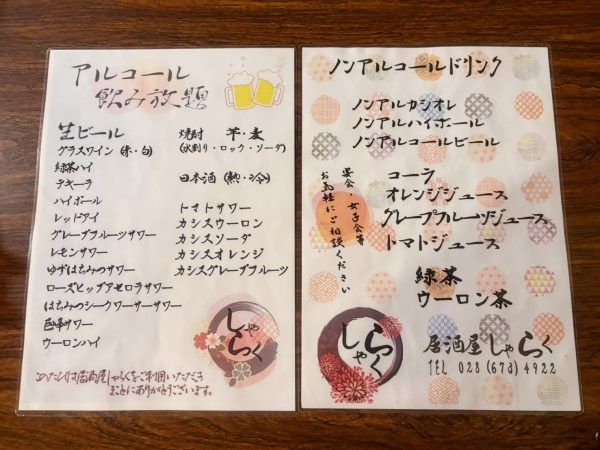 アルコール
飲み放題
生ビール
グラスワイン (赤・白)
緑茶ハイ
テキーラ
ハイボール
レッドアイ
グレープフルーツサワー
レモンサワー
ゆずはちみつサワー
ローズヒップアセロラサワー
はちみつシークワーサーサワー
巨峰サワー
ウーロンハイ
焼酎 芋・麦
(水割り・ロック・ソーダ)
日本酒 (熱・冷)
トマトサワー
カシスウーロン
カシスソーダ
カシスオレンジ
カシスグレープフルーツ
しゃらく
このたびは居酒屋しゃらくをご利用いただき
まことにありがとうございます。
ノンアルコールドリンク
ノンアルカシオレ
ノンアルハイボール
ノンアルコールビール
コーラ
オレンジジュース
グレープフルーツジュース
トマトジュース
緑茶
ウーロン茶
宴会・女子会等
お気軽にご相談ください
しゃらく
居酒屋 しゃらく
TEL 028 (678) 4922